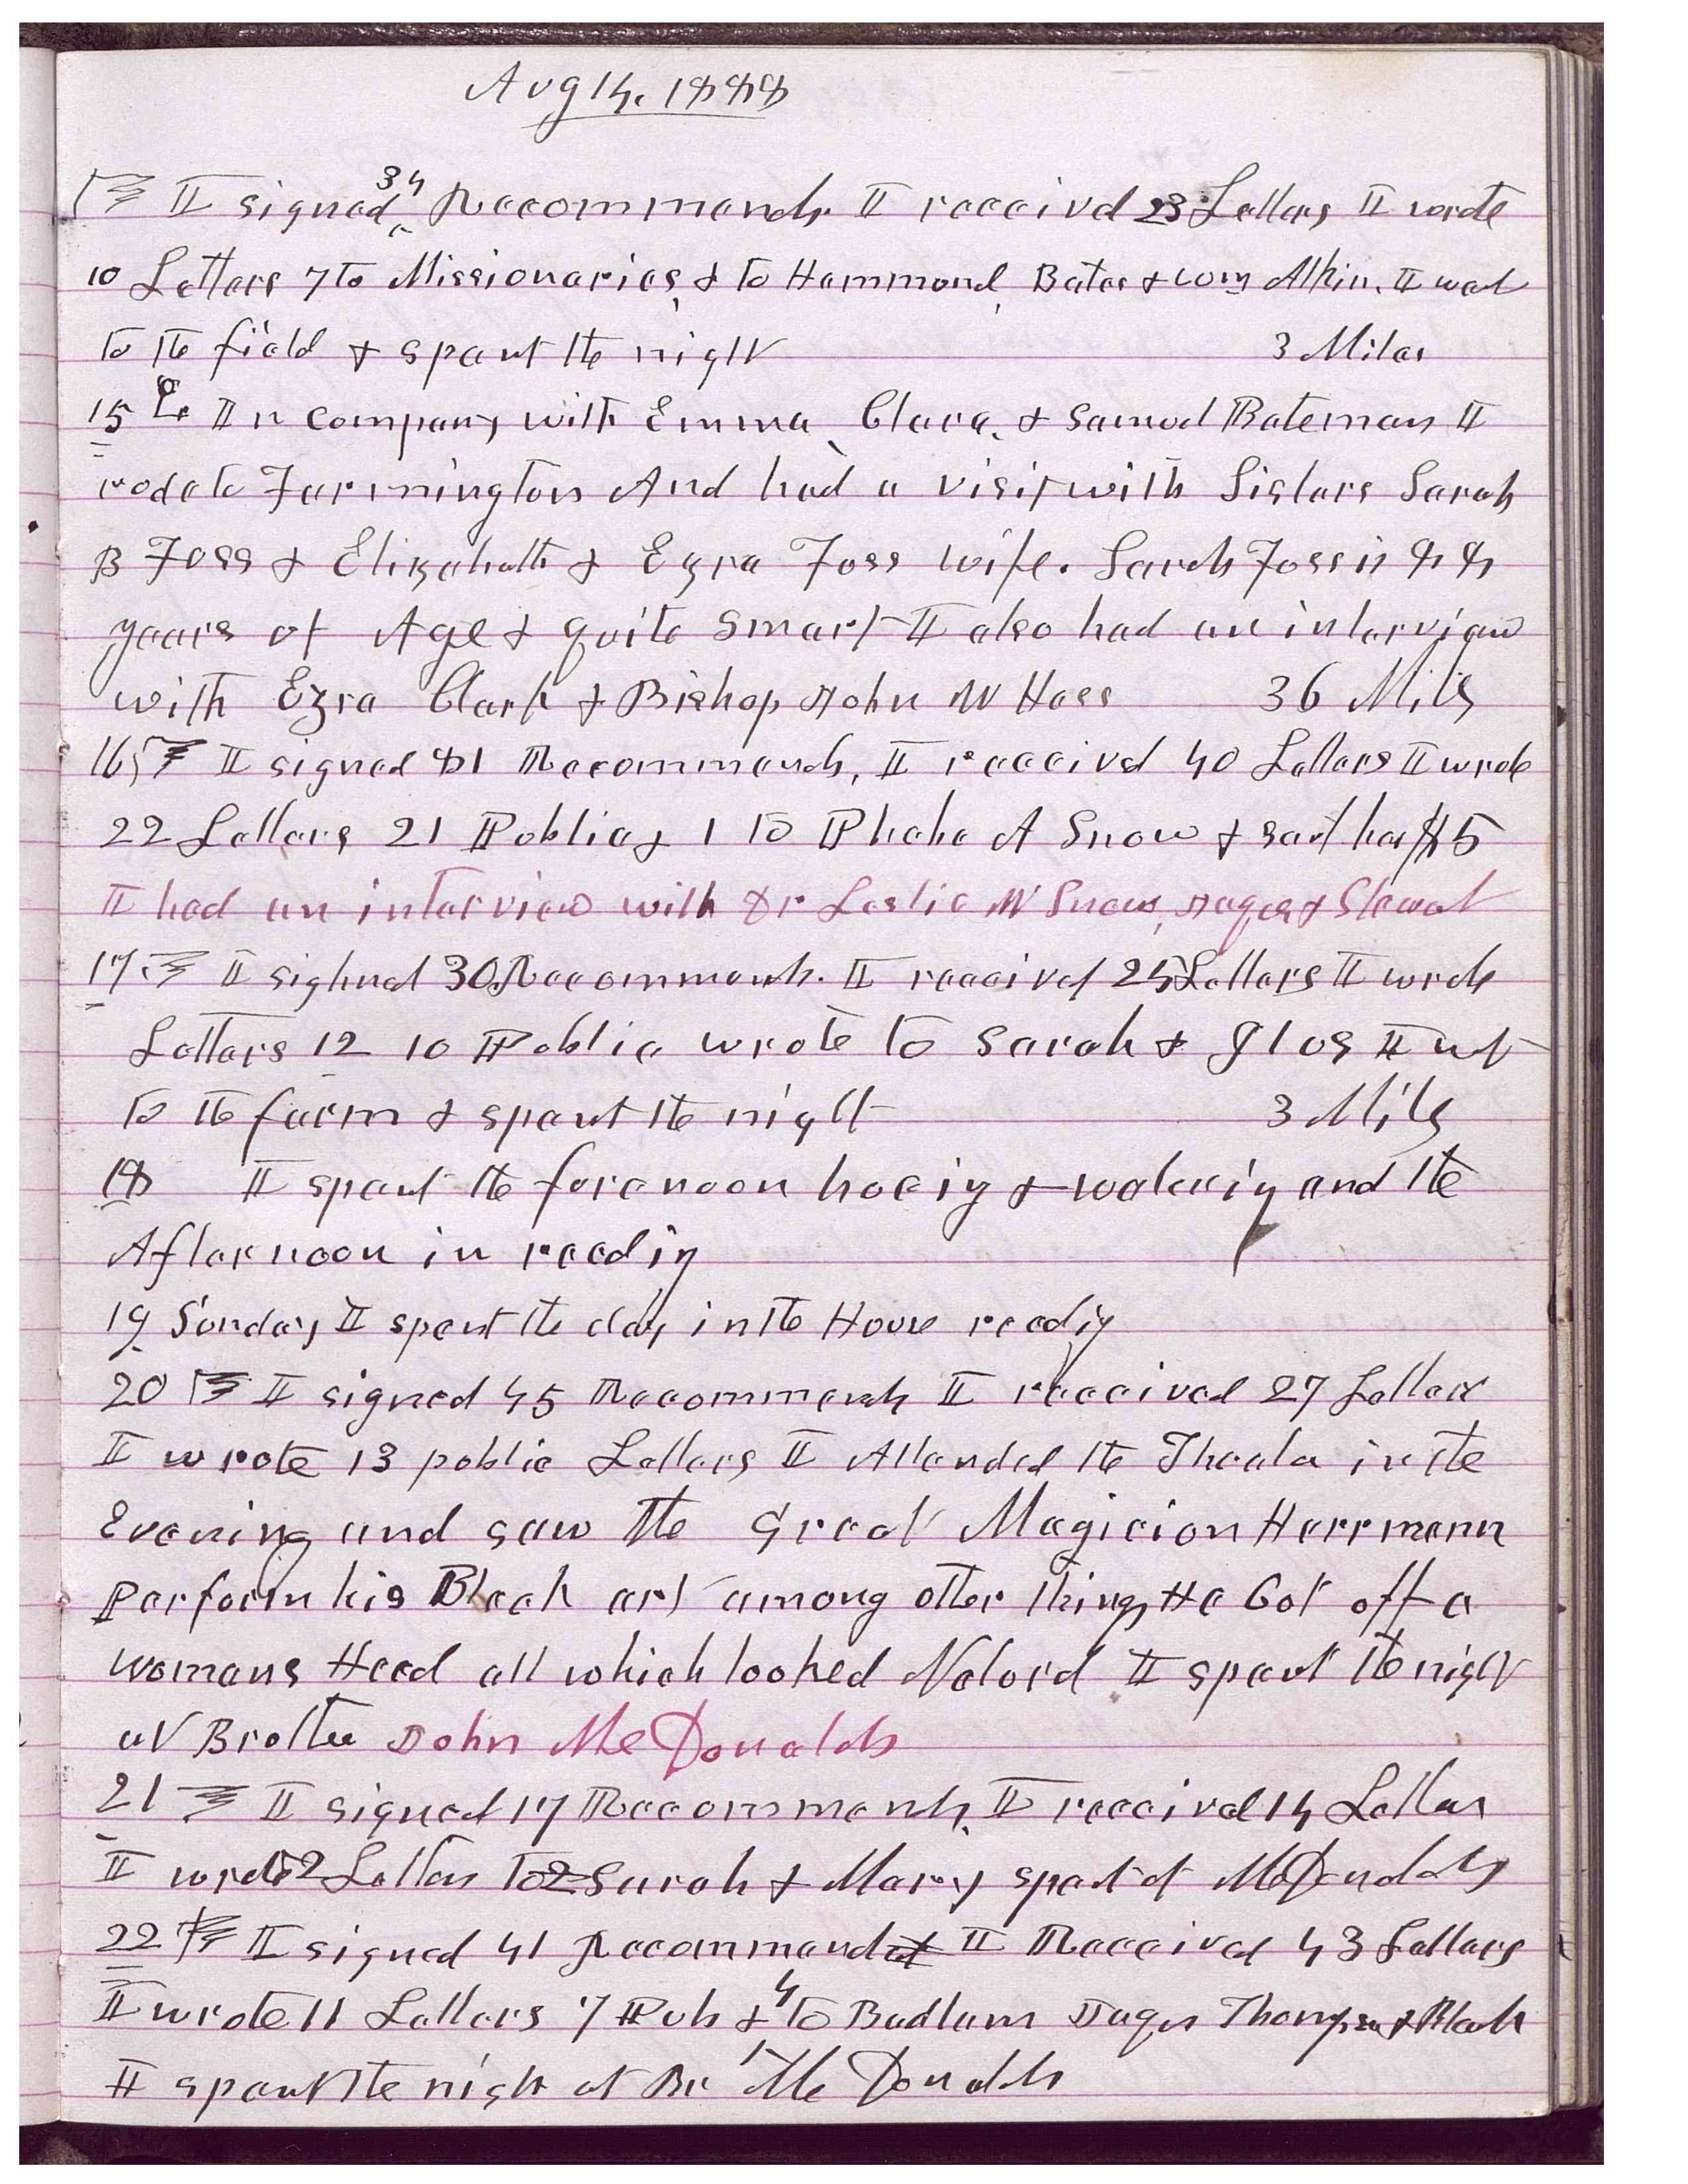 Aug 14. 1888
I signed 34 Recommends. I received 23 Letters I wrote
10 Letters 7 to Missionaries, & to Hammond, Bates & Wm Atkin. I went
to the field & spent the night 3 Miles
15 In company with Emma, Clara, & Samuel Bateman I
rode to Farmington And had a visit with Sisters Sarah
B Foss & Elizabeth & Ezra Foss wife. Sarah Foss is 88
years of Age & quite smart I also had an interview
with Ezra Clark & Bishop John W Hess 36 Miles
16 I signed 81 Recommends, I received 40 Letters I wrote
22 Letters 21 Public & 1 to Phebe A Snow & sent her $5
I had an interview with Dr Leslie W Snow, Jaques & Stewart
17 I sighned 30 Recommends. I received 25 Letters I wrote
Letters 12 10 Public wrote to Sarah & I went
to the farm & spent the night 3 Miles
18 I spent the forenoon hoeing & watering and the
Afternoon in reeding
19 Sunday I spent the day in the House reeding
20 I signed 45 Recommends I received 27 Letters
I wrote 13 public Letters I Attended the Theater in the
Evening and saw the great Magician Herrmann
Perform his Black art among other things He Cut off a
womans Head all which looked Naturel I spent the night
at Brother John McDonalds
21 I signed 17 Recommends, I received 14 Letters
I wrote 2 Letters to 2 Sarah & Mary spent at McDonalds
22 I signed 41 Recommends I Received 43 Letters
I wrote 11 Letters 7 Pub & 4 to Badlam Jaques Thompson & Black
I spent the night at Br McDonalds